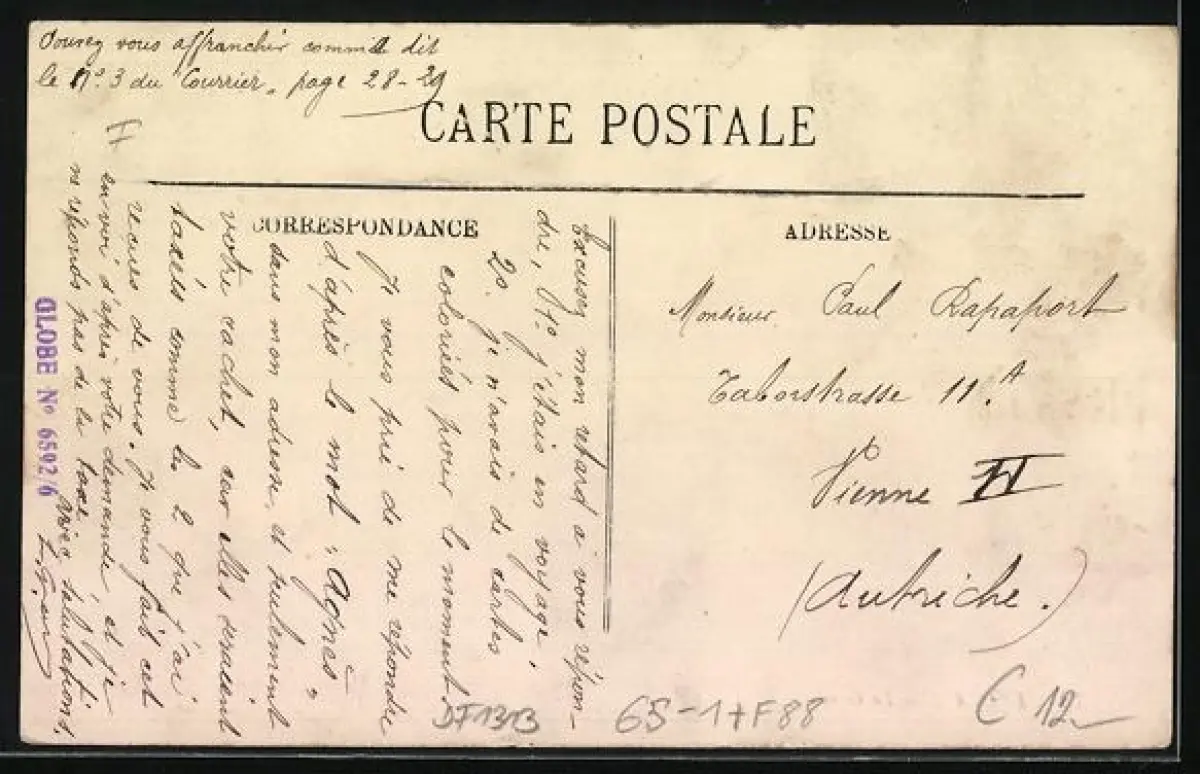 Pouvez vous affranchir comme dit
le N° 3 du Courrier, page 28-29
CARTE POSTALE
CORRESPONDANCE
ADRESSE
Excusez mon retard à vous répon-
dre, 1° j'étais en voyage,
2° je n'avais de cartes
coloriées pour le moment.
Je vous prie de me répondre
d'après le mot "Agnès"
dans mon adresse, et seulement
votre cachet, car elles seraient
taxées comme les 2 que j'ai
reçues de vous. Je vous fait cet
envoi d'après votre demande et je
ne réponds pas de la taxe.
Avec salutations,
Monsieur Paul Rapaport
Taborstrasse 11.A
Vienne II
(Autriche.)
GLOBE No 6592/6
DF1313
65-1+F88
C 12